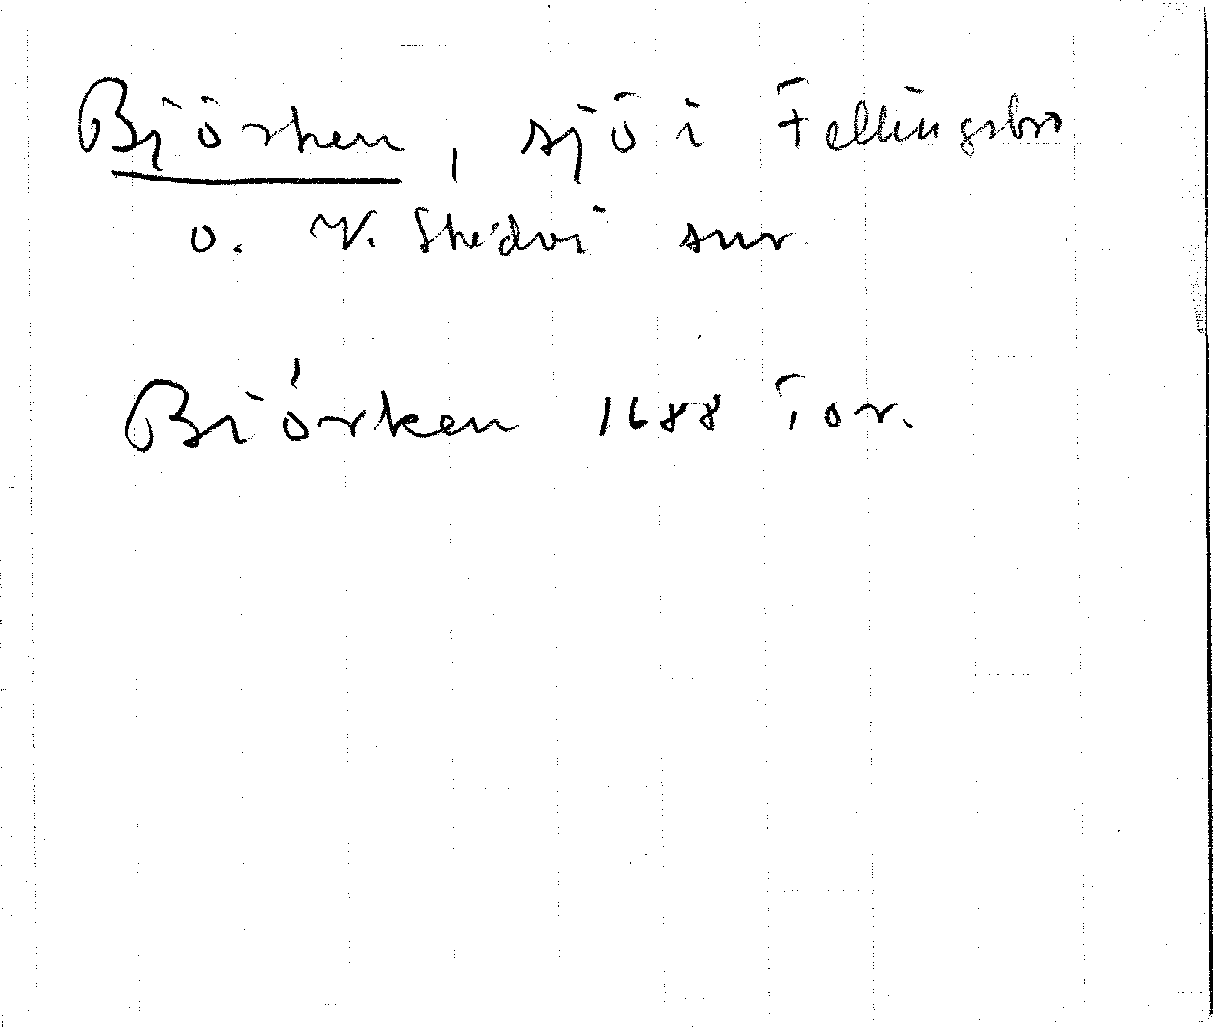 Björken, sjö i Fellingsbro
o. V. Skedvi snr
Biörken 1688 Jor.